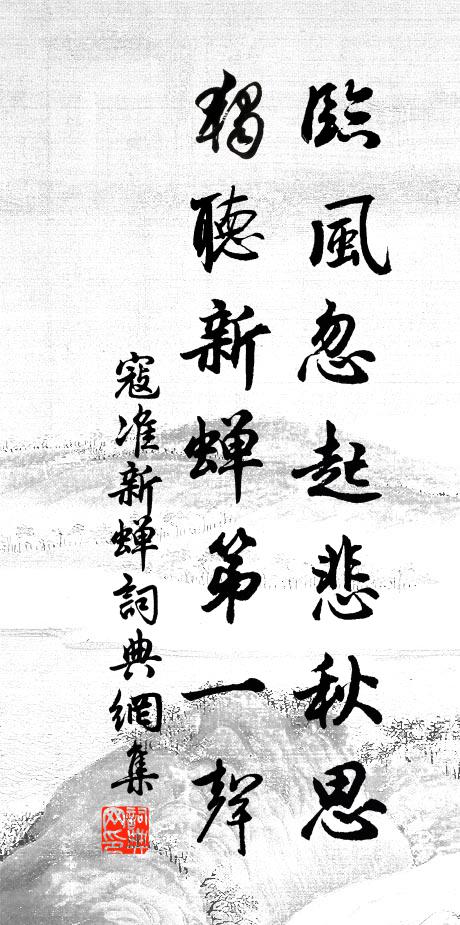 臨風忽起悲秋思
獨聽新蟬第一聲
寇准新蟬詞典網集